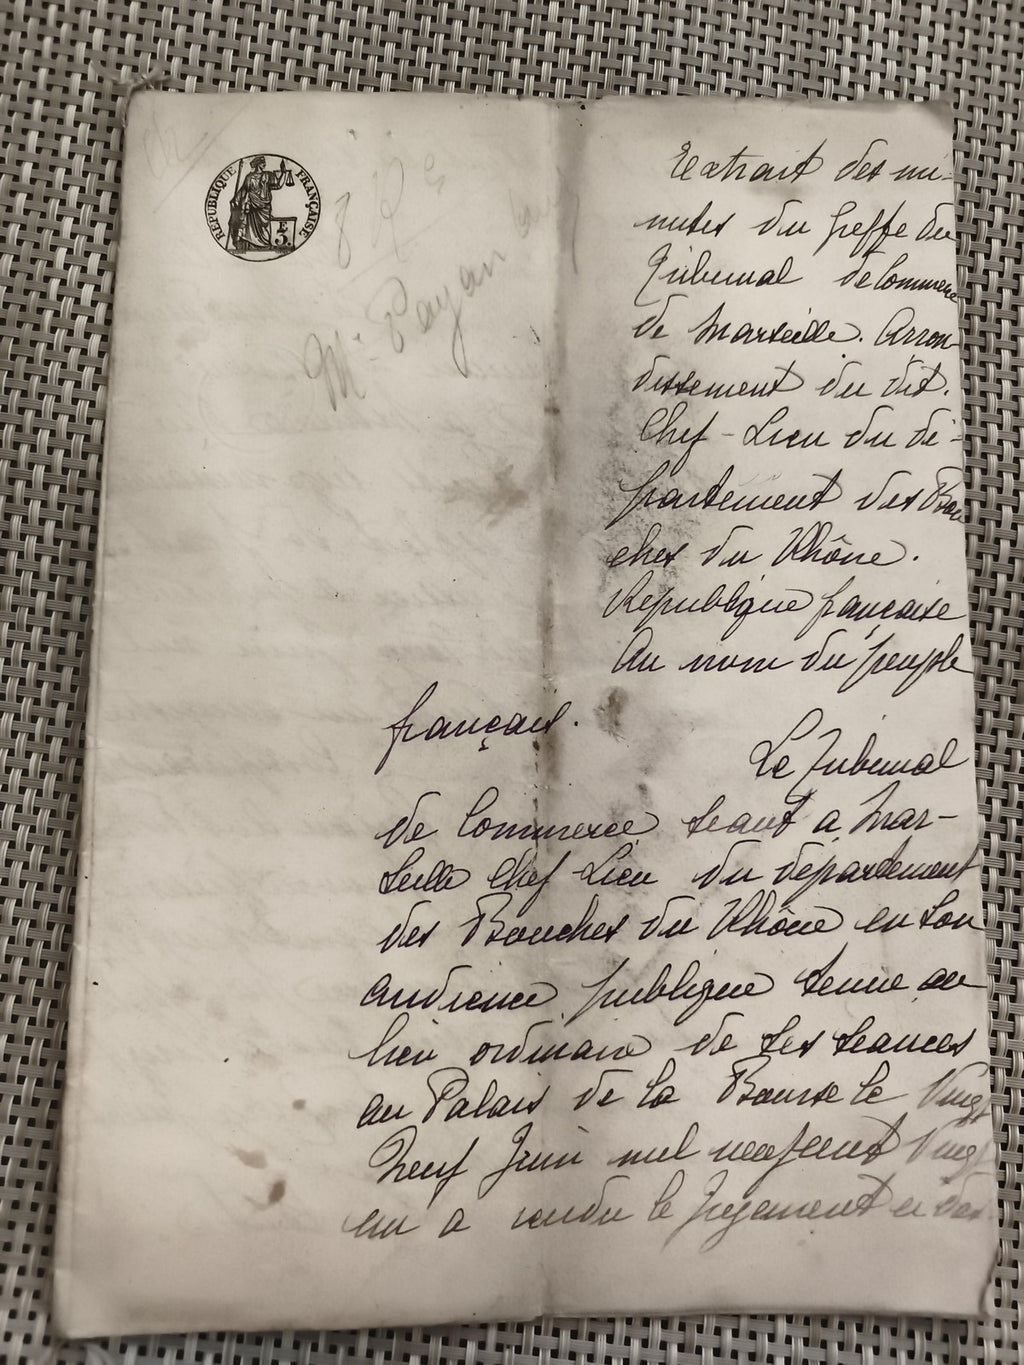 RÉPUBLIQUE FRANÇAISE
Me Payan
Extrait des mi-
nutes du Greffe du
Tribunal de Commerce
de Marseille. Arron-
dissement du dit.
Chef-Lieu du dé-
partement des Bou
ches du Rhône.
République française
Au nom du peuple
français.
Le Tribunal
de Commerce séant a Mar-
seille Chef-Lieu du département
des Bouches du Rhône en son
audience publique tenue au
lieu ordinaire de ses séances
au Palais de la Bourse le Vingt
Neuf Juin mil neuf cent Vingt
un a rendu le Jugement ci